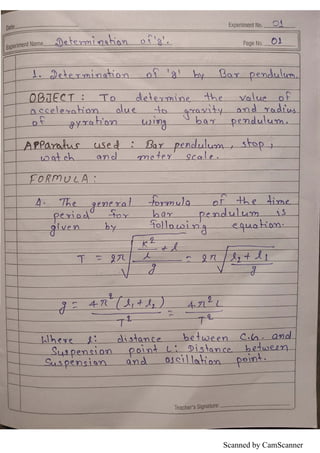 Date
Experiment No. 01
Experiment Name Determination of 'g'.
Page No. 01
1. Determination of 'g' by Bar pendulum.
OBJECT : To determine the value of
acceleration due to gravity and radius
of gyration using bar pendulum.
APParatus used : Bar pendulum, stop,
watch and meter scale.
FORMULA :
A. The general formula of the time
period for bar pendulum is
given by following equation.
T = 2π √((K²/l + l)/g) = 2π √((l₂ + l₁)/g)
g = 4π²(l₁+l₂)/T² = 4π²L/T²
Where l: distance between C.G. and
Suspension point L: Distance between
Suspension and oscillation point.
Teacher's Signature
Scanned by CamScanner